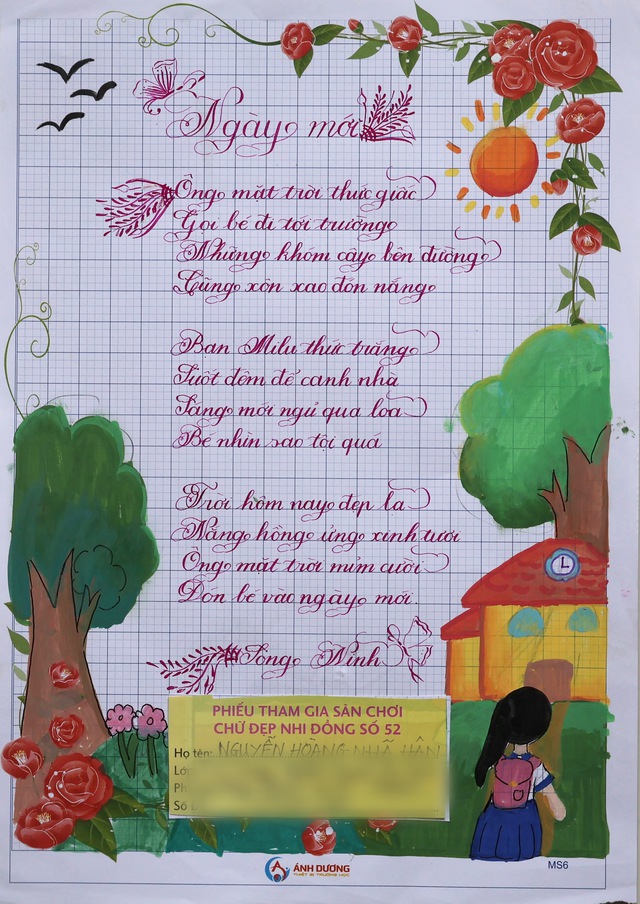 Ngày mới
Ông mặt trời thức giấc
Gọi bé đi tới trường
Những khóm cây bên đường
Cũng xôn xao đón nắng
Bạn Milu thức trắng
Suốt đêm để canh nhà
Sáng mới ngủ qua loa
Bé nhìn sao tội quá
Trời hôm nay đẹp lạ
Nắng hồng ửng xinh tươi
Ông mặt trời mỉm cười
Đón bé vào ngày mới.
Sông Ninh
PHIẾU THAM GIA SÂN CHƠI
CHỮ ĐẸP NHI ĐỒNG SỐ 52
Họ tên: NGUYỄN HOÀNG NHÃ HÂN
Số
ÁNH DƯƠNG
THIẾT BỊ TRƯỜNG HỌC
MS6